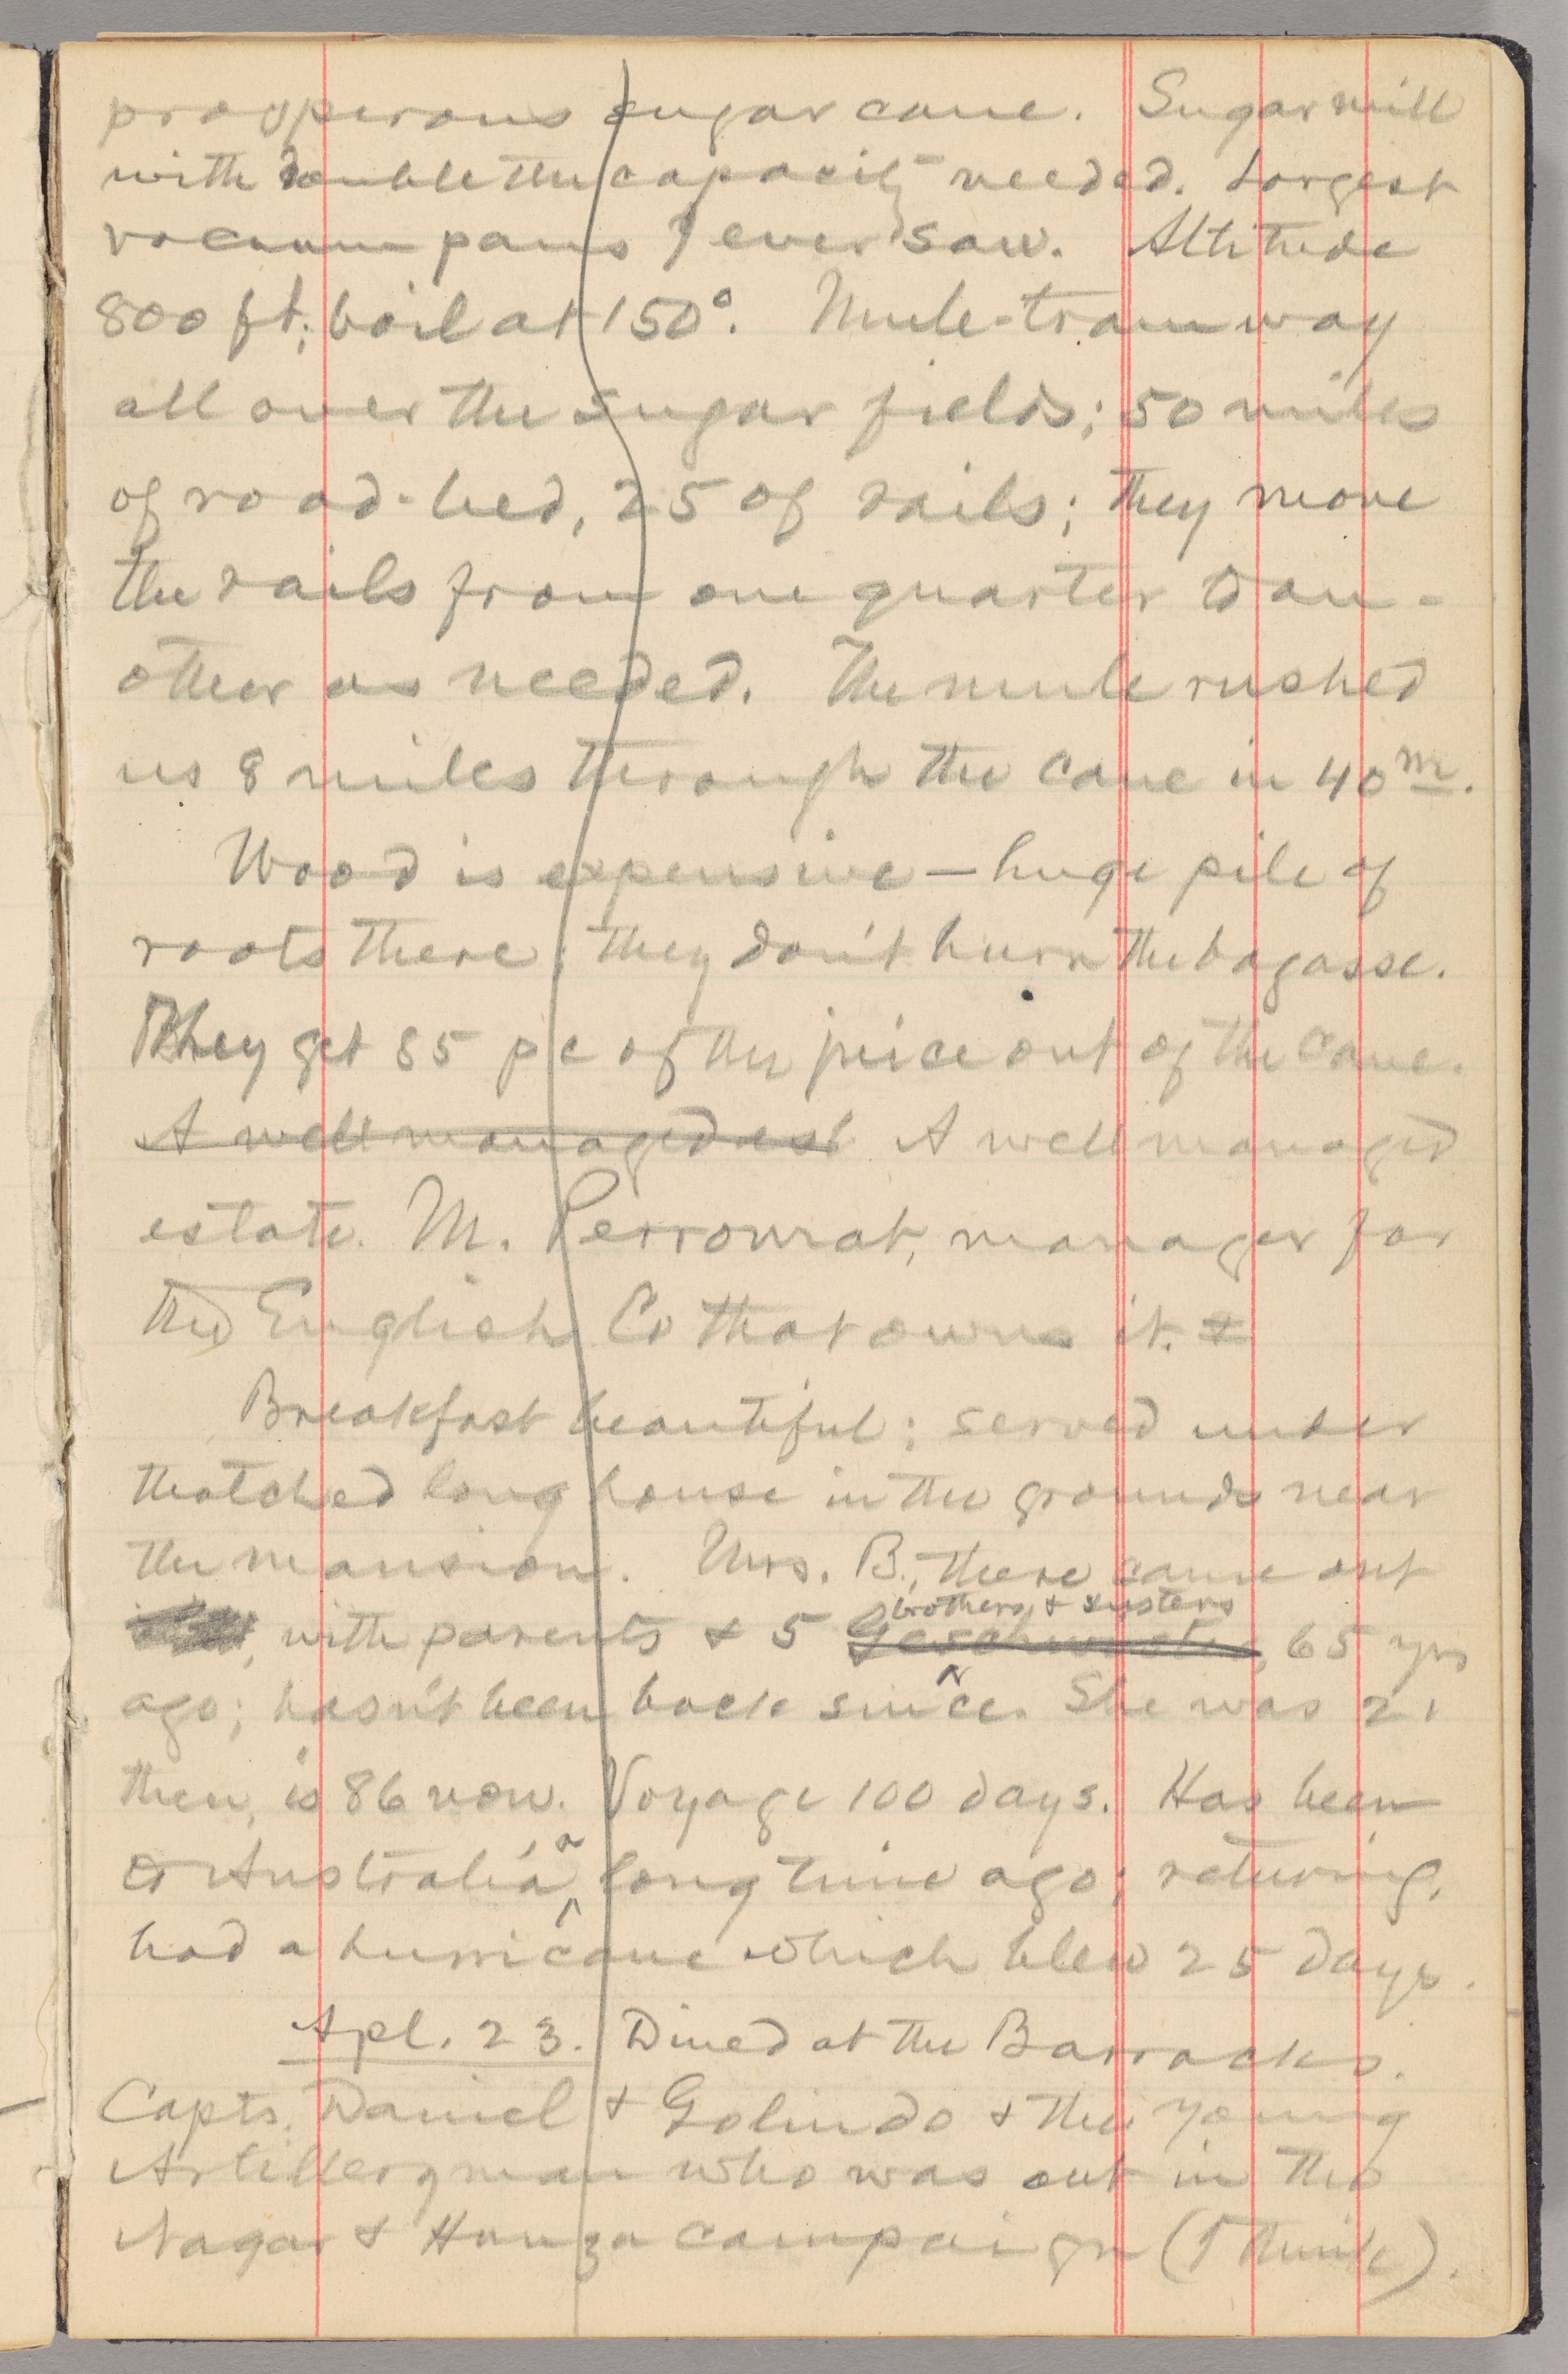 prosperous sugar cane. Sugar mill
with double the capacity needed. Largest
vacuum pans I ever saw. Altitude
800 ft; boil at 150°. Mule-tramway
all over the sugar fields; 50 miles
of road-bed, 25 of rails; they move
the rails from one quarter to an-
other as needed. The mule rushed
us 8 miles through the cane in 40m.
Wood is expensive — huge pile of
roots there; they don't burn the bagasse.
They get 85 pc of the juice out of the cane.
A well managed est A well managed
estate. M. Perrowrat, manager for
the English Co that owns it. &
Breakfast beautiful; served under
thatched long house in the grounds near
the mansion. Mrs. B., there came out
brothers & sisters
, with parents & 5 Geschwister, 65 yrs
ago; hasn't been back since. She was 21
then, is 86 now. Voyage 100 days. Has been
to Australia, a long time ago; returning,
had a hurricane which blew 25 days.
Apl. 23. Dined at the Barracks.
Capts. Daniel & Golindo & the young
Artilleryman who was out in the
Nagar & Hunza campaign (I think).